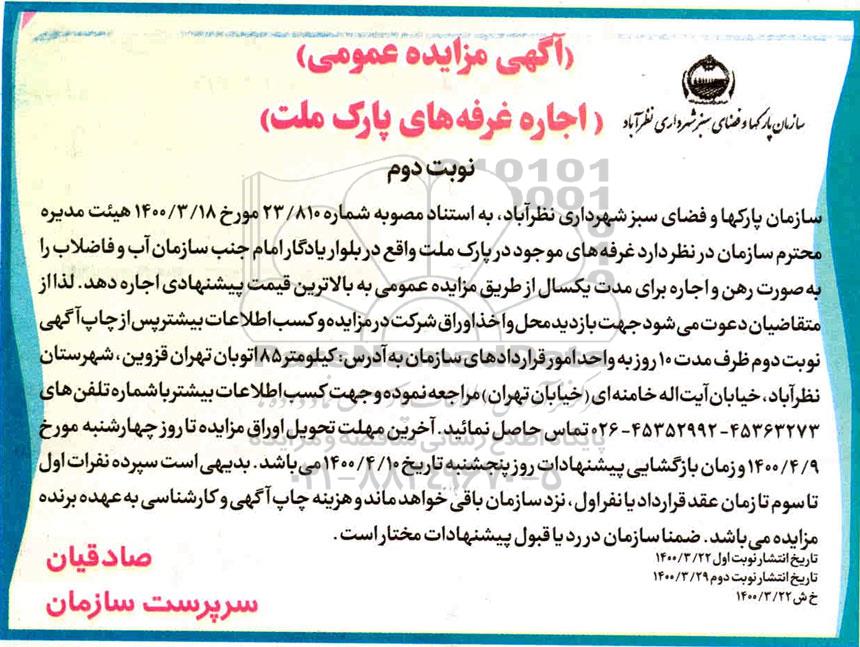 (آگهی مزایده عمومی)
(اجاره غرفه‌های پارک ملت)
سازمان پارکها و فضای سبز شهرداری نظرآباد
نوبت دوم
سازمان پارکها و فضای سبز شهرداری نظرآباد، به استناد مصوبه شماره ۲۳/۸۱۰ مورخ ۱۴۰۰/۳/۱۸ هیئت مدیره
محترم سازمان در نظر دارد غرفه های موجود در پارک ملت واقع در بلوار یادگار امام جنب سازمان آب و فاضلاب را
به صورت رهن و اجاره برای مدت یکسال از طریق مزایده عمومی به بالاترین قیمت پیشنهادی اجاره دهد. لذا از
متقاضیان دعوت می شود جهت بازدید محل و اخذ اوراق شرکت در مزایده و کسب اطلاعات بیشتر پس از چاپ آگهی
نوبت دوم ظرف مدت ۱۰ روز به واحد امور قراردادهای سازمان به آدرس: کیلومتر ۸۵ اتوبان تهران قزوین، شهرستان
نظرآباد، خیابان آیت اله خامنه ای (خیابان تهران) مراجعه نموده و جهت کسب اطلاعات بیشتر با شماره تلفن های
۴۵۳۶۳۲۷۳-۴۵۳۵۲۹۹۲-۰۲۶ تماس حاصل نمائید. آخرین مهلت تحویل اوراق مزایده تا روز چهارشنبه مورخ
۱۴۰۰/۴/۹ و زمان بازگشایی پیشنهادات روز پنجشنبه تاریخ ۱۴۰۰/۴/۱۰ می باشد. بدیهی است سپرده نفرات اول
تا سوم تا زمان عقد قرارداد با نفر اول، نزد سازمان باقی خواهد ماند و هزینه چاپ آگهی و کارشناسی به عهده برنده
مزایده می باشد. ضمنا سازمان در رد یا قبول پیشنهادات مختار است.
تاریخ انتشار نوبت اول ۱۴۰۰/۳/۲۲
تاریخ انتشار نوبت دوم ۱۴۰۰/۳/۲۹
خ ش ۱۴۰۰/۳/۲۲
صادقیان
سرپرست سازمان
پایگاه اطلاع رسانی مناقصه و مزایده
۰۲۱-۸۸۳۴۹۶۷۰-۵